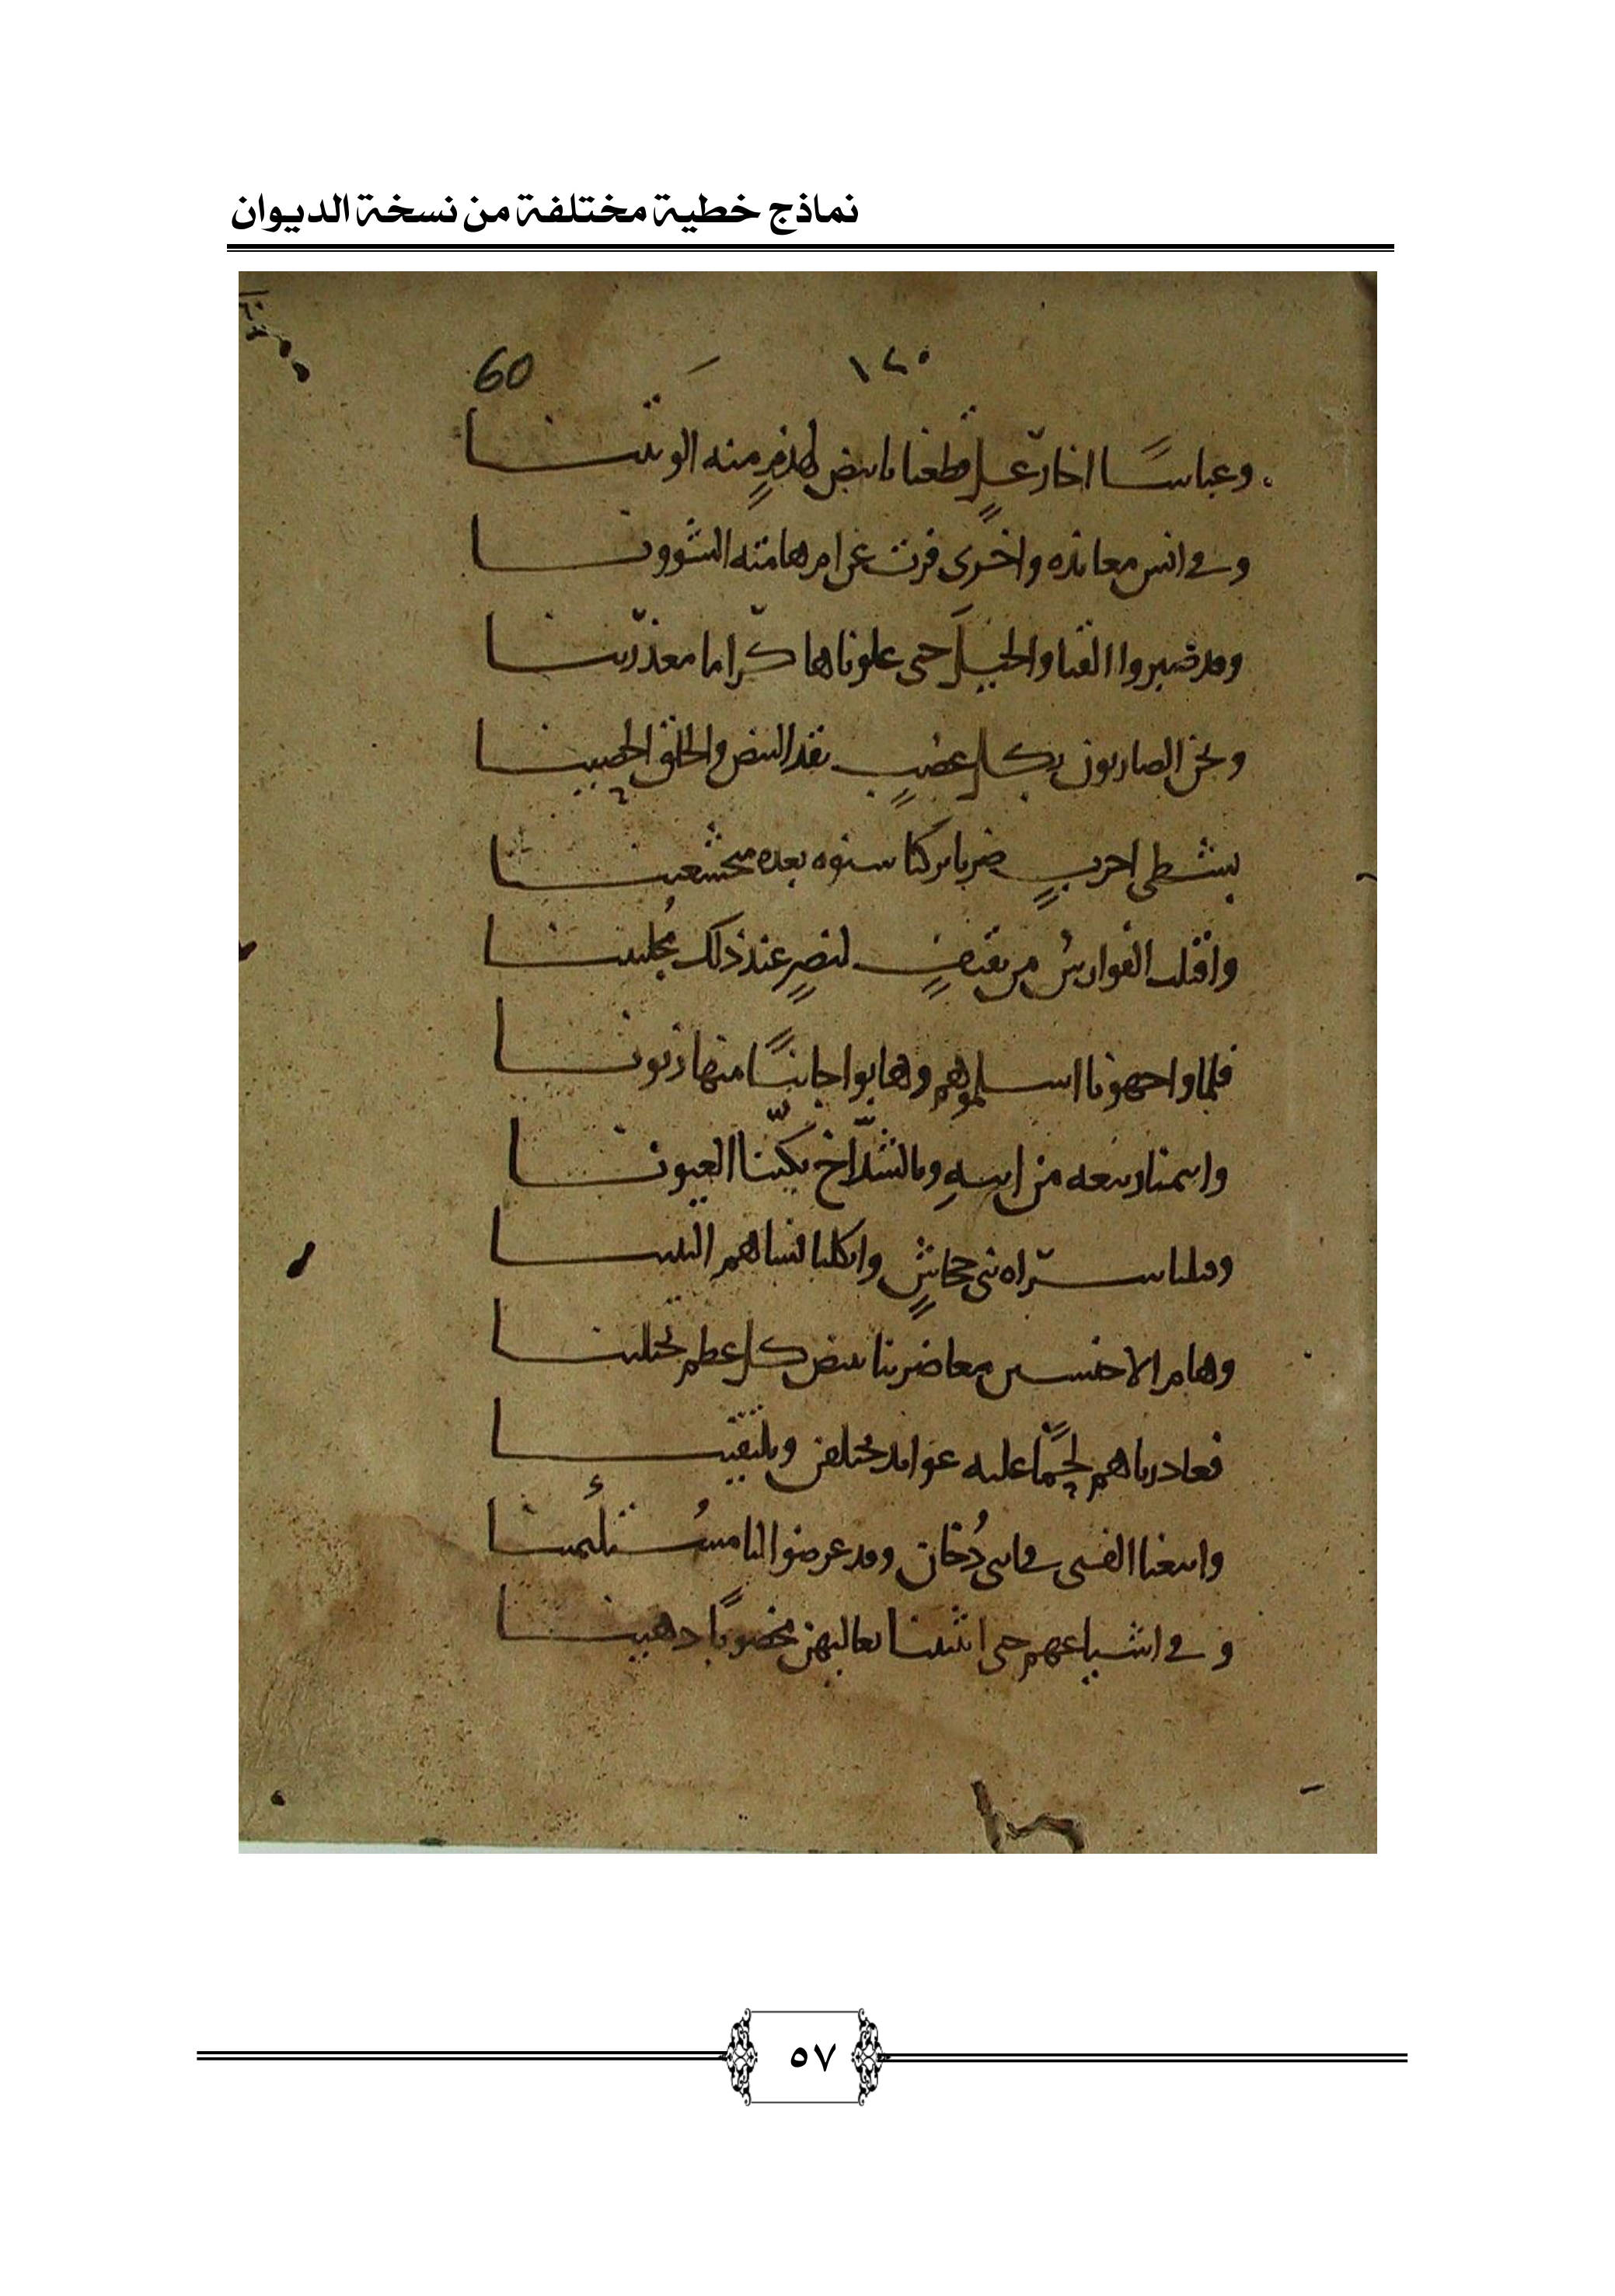 نماذج خطية مختلفة من نسخة الديوان
١٢٠ 60
وعباسًا اخا رعلٍ قطعنا بابيض لهذمٍ منه الوتينا
وفي انس معانده واخرى فرت عن ام هامته الشوونا
وقد صبروا القنا والخيل حتى علوناها كراما معذرينا
ونحن الضاربون بكل عضبٍ نقد البيض والحلق الحصينا
بشطي احربٍ ضربا تركنا بعده
وافلت الفوارس من ثقيفٍ لنصرٍ عند ذلك مجلبينا
فلما واجهونا اسلموهم وهابوا جانبًا منها زبونا
ربيعه من ابيهِ وبالشدّاخ بكّينا العيونا
وقتلنا سراه بني جحاشٍ واثكلنا نساهم البنينا
وهام الاخنسين معا ضربنا ببيض كل عظم يختلينا
فغادرناهم لحمًا عليه عوايد يختلفن ويلتقينا
دُخان وقد عرضوا لنا مستلئمينا
وفي اشياعهم حتى انثنينا دهينا
٥٧